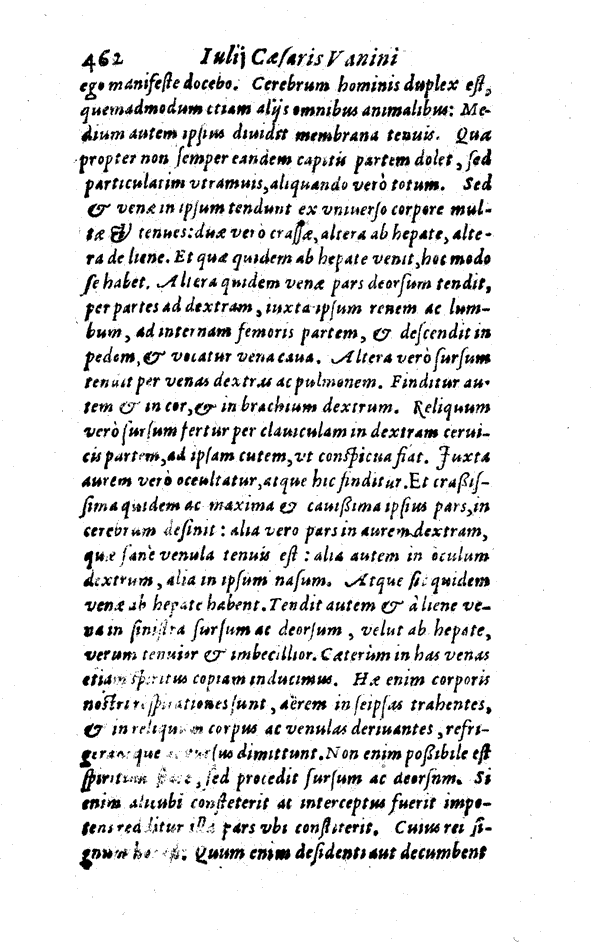 462 Iulij Cæſaris Vanini
ego manifeſte docebo. Cerebrum hominis duplex eſt,
quemadmodum etiam alijs omnibus animalibus: Me-
dium autem ipſius diuidit membrana tenuis. Qua
propter non ſemper eandem capitis partem dolet, ſed
particulatim vtramuis, aliquando verò totum. Sed
& venæ in ipſum tendunt ex vniuerſo corpore mul-
tæ & tenues: duæ verò craſſæ, altera ab hepate, alte-
ra de liene. Et quæ quidem ab hepate venit, hoc modo
ſe habet. Altera quidem venæ pars deorſum tendit,
per partes ad dextram, iuxta ipſum renem ac lum-
bum, ad internam femoris partem, & deſcendit in
pedem, & vocatur vena caua. Altera verò ſurſum
tendit per venas dextras ac pulmonem. Finditur au-
tem & in cor, & in brachium dextrum. Reliquum
verò ſurſum fertur per clauiculam in dextram cerui-
cis partem, ad ipſam cutem, vt conſpicua fiat. Juxta
aurem verò occultatur, atque hic finditur. Et craßiſ-
ſima quidem ac maxima & cauißima ipſius pars, in
cerebrum deſinit: alia vero pars in aurem dextram,
quæ ſanè venula tenuis eſt: alia autem in oculum
dextrum, alia in ipſum naſum. Atque ſic quidem
venæ ab hepate habent. Tendit autem & à liene ve-
na in ſiniſtra ſurſum ac deorſum, velut ab hepate,
verum tenuior & imbecillior. Cæterùm in has venas
etiam ſpiritus copiam inducimus. Hæ enim corporis
noſtri reſpirationes ſunt, aërem in ſeipſas trahentes,
& in reliquum corpus ac venulas deriuantes, refri-
gerantque ac rurſus dimittunt. Non enim poßibile eſt
ſpiritum ſed procedit ſurſum ac deorſum. Si
enim alicubi conſteterit at interceptus fuerit impo-
tens redditur illa pars vbi conſtiterit. Cuius rei ſi-
gnum Quum enim deſidenti aut decumbent